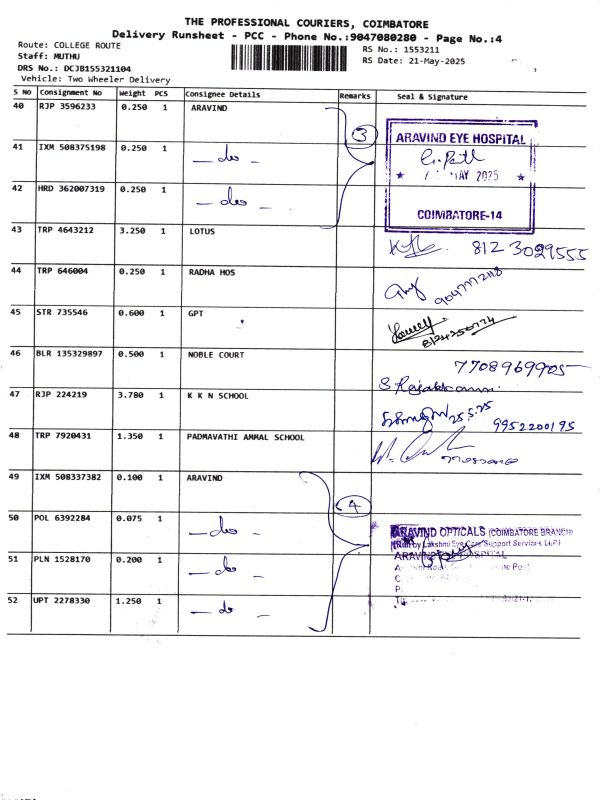 THE PROFESSIONAL COURIERS, COIMBATORE
Delivery Runsheet - PCC - Phone No.:9047080280 - Page No.:4
Route: COLLEGE ROUTE
Staff: MUTHU
DRS No.: DCJB155321104
Vehicle: Two Wheeler Delivery
RS No.: 1553211
RS Date: 21-May-2025
S No Consignment No Weight PCS Consignee Details Remarks Seal & Signature
40 RJP 3596233 0.250 1 ARAVIND
3
ARAVIND EYE HOSPITAL
MAY 2025
COIMBATORE-14
41 IXM 508375198 0.250 1 — do —
42 HRD 362007319 0.250 1 — do —
43 TRP 4643212 3.250 1 LOTUS
812 3029555
44 TRP 646004 0.250 1 RADHA HOS
45 STR 735546 0.600 1 GPT
46 BLR 135329897 0.500 1 NOBLE COURT
7708969905
47 RJP 224219 3.780 1 K K N SCHOOL
25.5.25 9952200195
48 TRP 7920431 1.350 1 PADMAVATHI AMMAL SCHOOL
49 IXM 508337382 0.100 1 ARAVIND
4
50 POL 6392284 0.075 1 — do —
ARAVIND OPTICALS (COIMBATORE BRANCH)
(Run by Lakshmi Eye Care Support Services LLP)
51 PLN 1528170 0.200 1 — do —
52 UPT 2278330 1.250 1 — do —